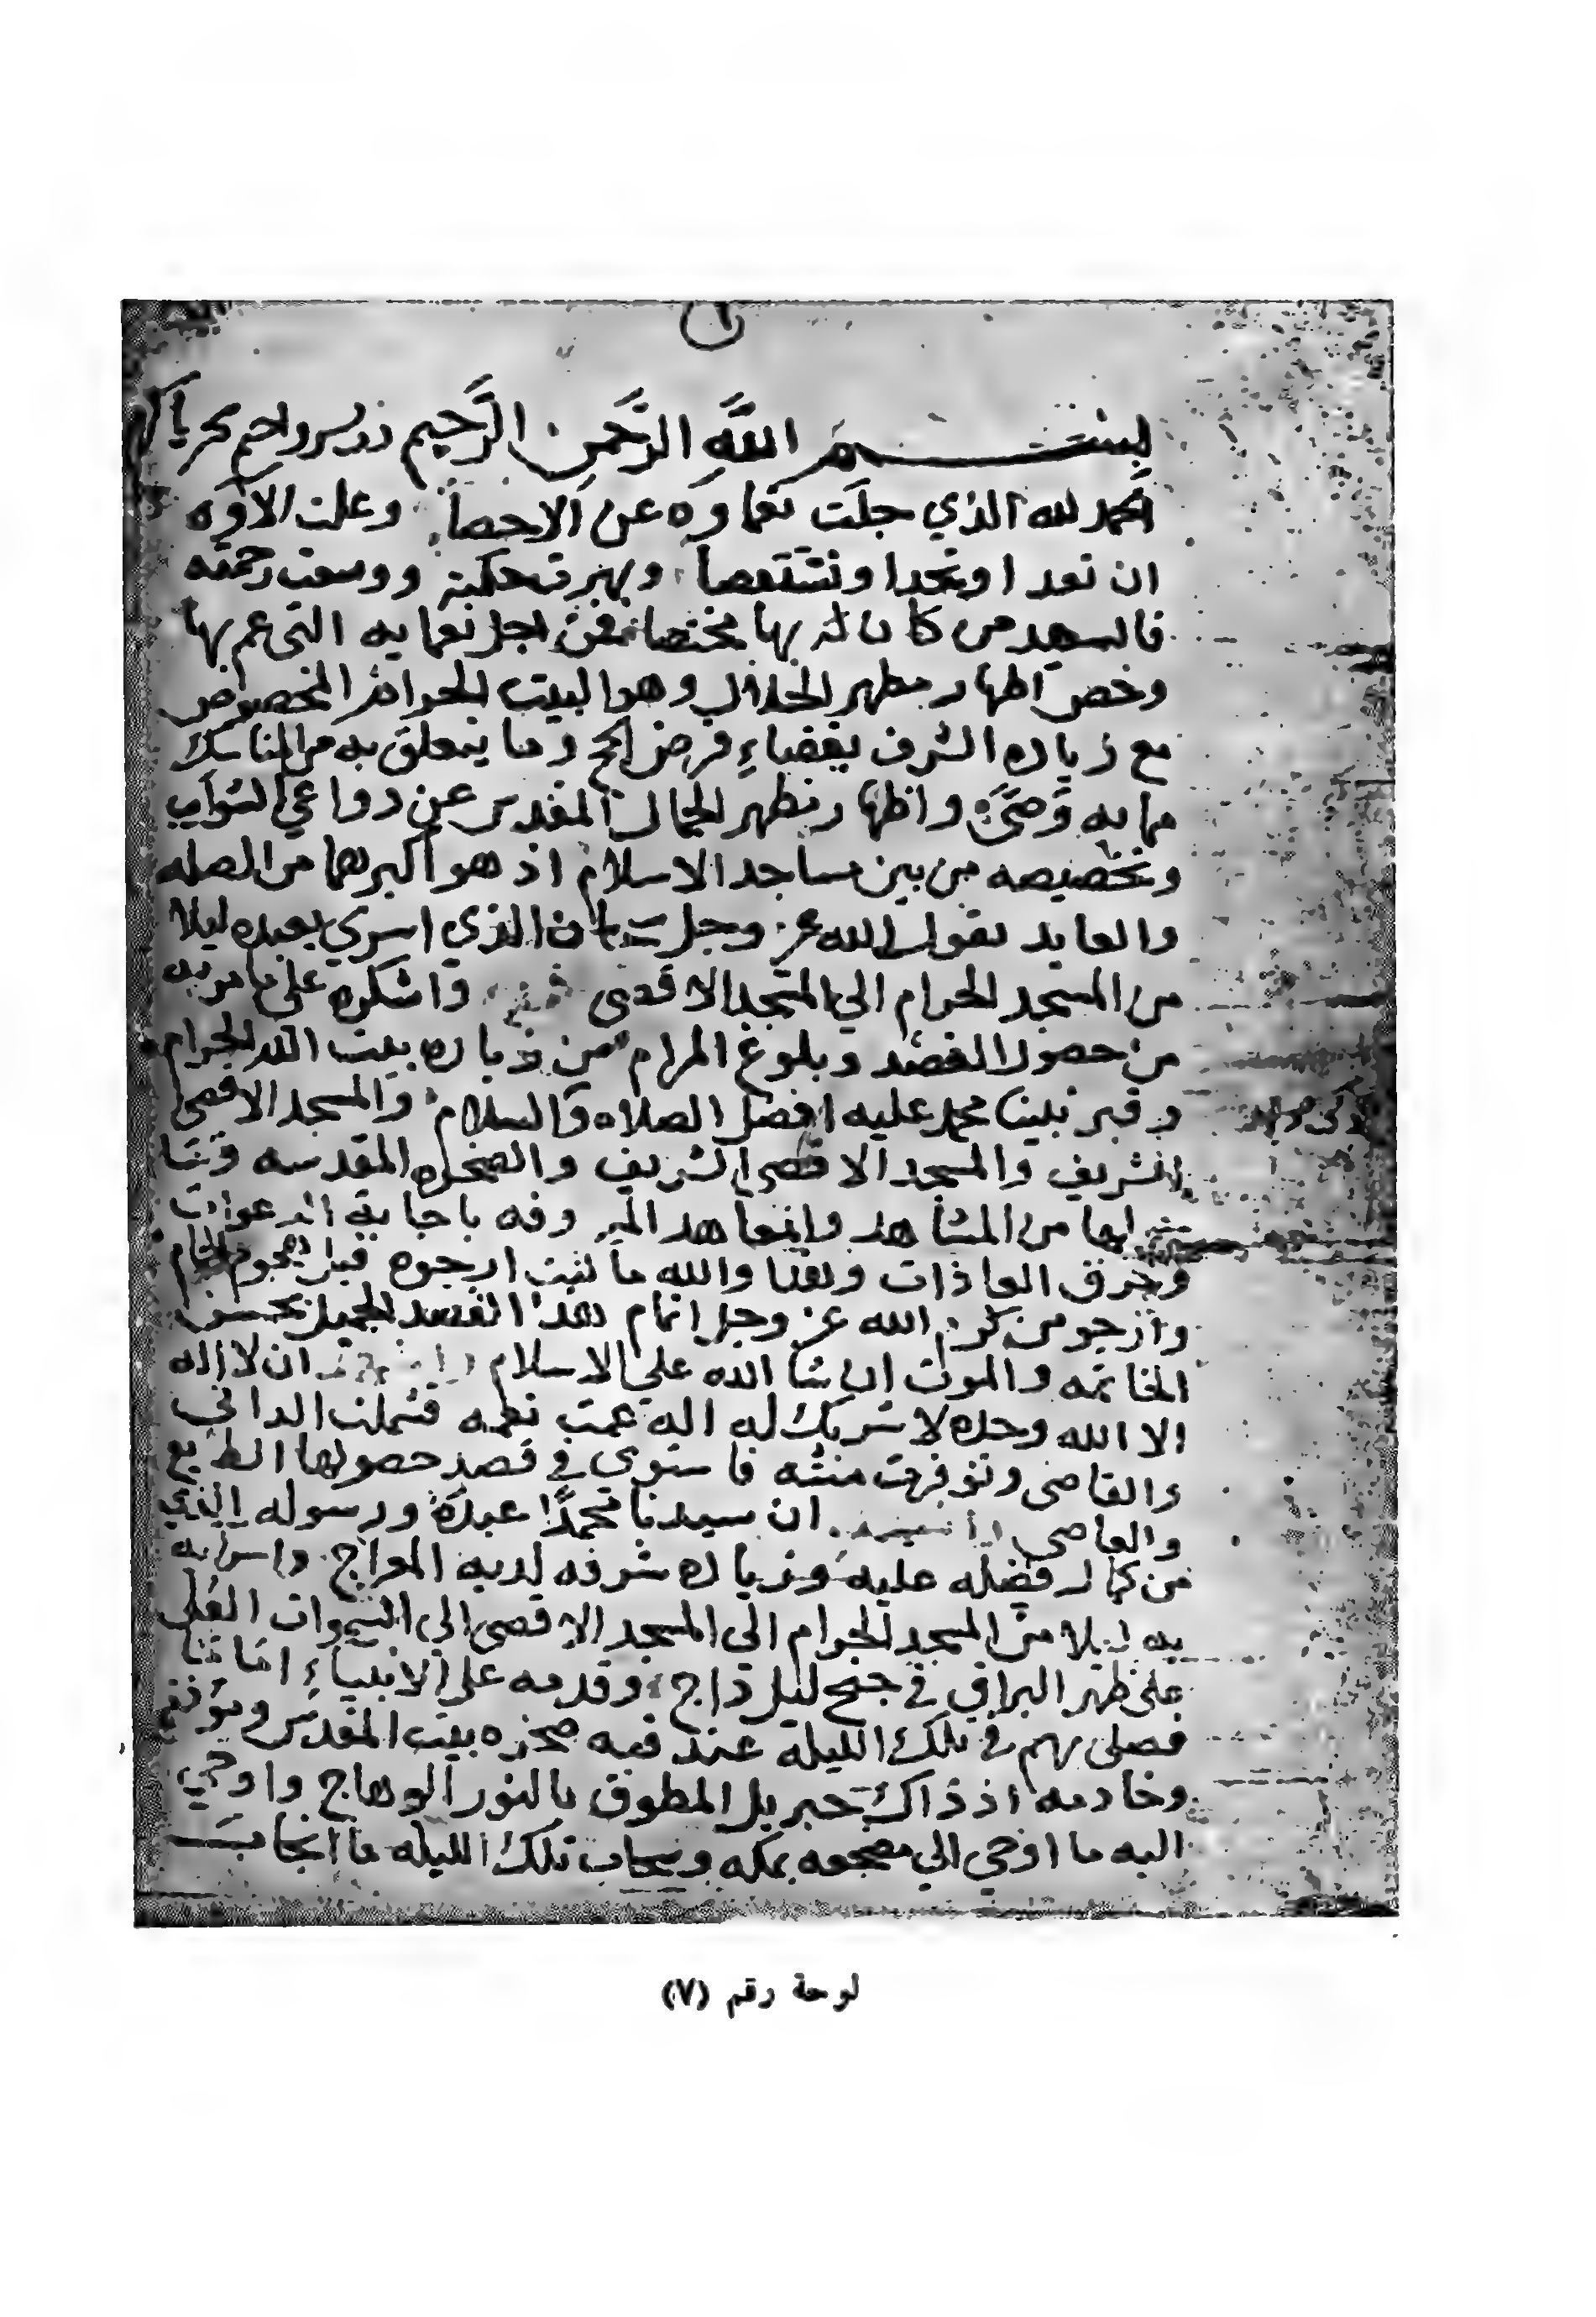 بسم الله الرحمن الرحيم رب يسر واختم بخير يا كريم
الحمد لله الذي جلت نعماوه عن الاحصا وعلت الاوه
ان تعد او تحدا وتستقصا وبهرت حكمته ووسعت رحمته
فالسعيد من كان له بها مختصا فمن اجل نعمايه التي عم بها
وخص اظهار مظهر الجلال وهو البيت الحرام المخصوص
مع زياده الشرف بقضاء فرض الحج وما يتعلق به من المناسك
مما به وصى واظهار مظهر الجمال المقدس عن دواعي الشواب
وتخصيصه من بين مساجد الاسلام اذ هو اكبرها من الصله
والعايد بقول الله عز وجل سبحان الذي اسري بعبده ليلا
من المسجد الحرام الي المسجد الاقصى واشكره على ما من به
من حصول القصد وبلوغ المرام من زياره بيت الله الحرام
وقبر نبينا محمد عليه افضل الصلاه والسلام والمسجد الاقصى
الشريف والمسجد الاقصى الشريف والصخره المقدسه
لها من المشاهد والمعاهد المعروفه باجابة الدعوات
وخرق العاذات وبلغنا والله ما كنت ارجوه قبل هجوم الحمام
وارجو من كرم الله عز وجل اتمام هذا القصد الجميل بحسن
الخاتمه والموت ان شا الله على الاسلام ان لا اله
الا الله وحده لا شريك له اله عمت نعمه فشملت الداني
والقاصى وتوفرت مننه فاستوى في قصد حصولها الطايع
والعاصي ان سيدنا محمدًا عبده ورسوله الذي
من كمال فضله عليه وزياده شرفه لديه المعراج واسرا به
به ليلا من المسجد الحرام الى المسجد الاقصى الى السموات العلى
على ظهر البراق في جنح ليل داج وقدمه على الانبياء اماما
فصلى بهم في تلك الليلة عند قبه صخره بيت المقدس
وخادمه اذ ذاك جبريل المطوق بالنور الوهاج واوحي
اليه ما اوحي الي مضجعه بمكه وسحاب تلك الليله ما انجاب
لوحة رقم (٧)